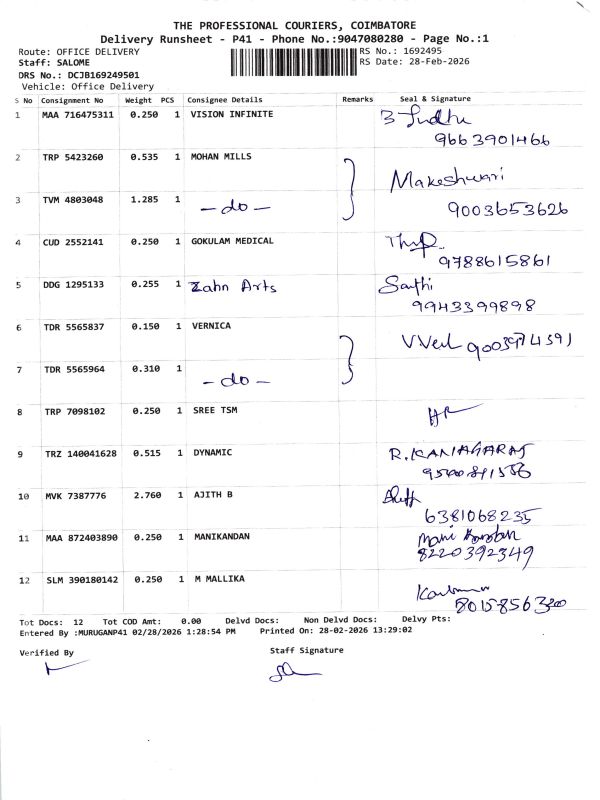 THE PROFESSIONAL COURIERS, COIMBATORE
Delivery Runsheet - P41 - Phone No.:9047080280 - Page No.:1
Route: OFFICE DELIVERY RS No.: 1692495
Staff: SALOME RS Date: 28-Feb-2026
DRS No.: DCJB169249501
Vehicle: Office Delivery
S No Consignment No Weight PCS Consignee Details Remarks Seal & Signature
1 MAA 716475311 0.250 1 VISION INFINITE
9663901466
2 TRP 5423260 0.535 1 MOHAN MILLS Makeshwari
3 TVM 4803048 1.285 1 - do - 9003653626
4 CUD 2552141 0.250 1 GOKULAM MEDICAL
9788615861
5 DDG 1295133 0.255 1 Zahn Arts Santhi
9943399898
6 TDR 5565837 0.150 1 VERNICA
7 TDR 5565964 0.310 1 - do -
8 TRP 7098102 0.250 1 SREE TSM
9 TRZ 140041628 0.515 1 DYNAMIC R. KANAGARAJ
10 MVK 7387776 2.760 1 AJITH B
6381068235
11 MAA 872403890 0.250 1 MANIKANDAN
8220392349
12 SLM 390180142 0.250 1 M MALLIKA
8015856320
Tot Docs: 12 Tot COD Amt: 0.00 Delvd Docs: Non Delvd Docs: Delvy Pts:
Entered By :MURUGANP41 02/28/2026 1:28:54 PM Printed On: 28-02-2026 13:29:02
Verified By Staff Signature